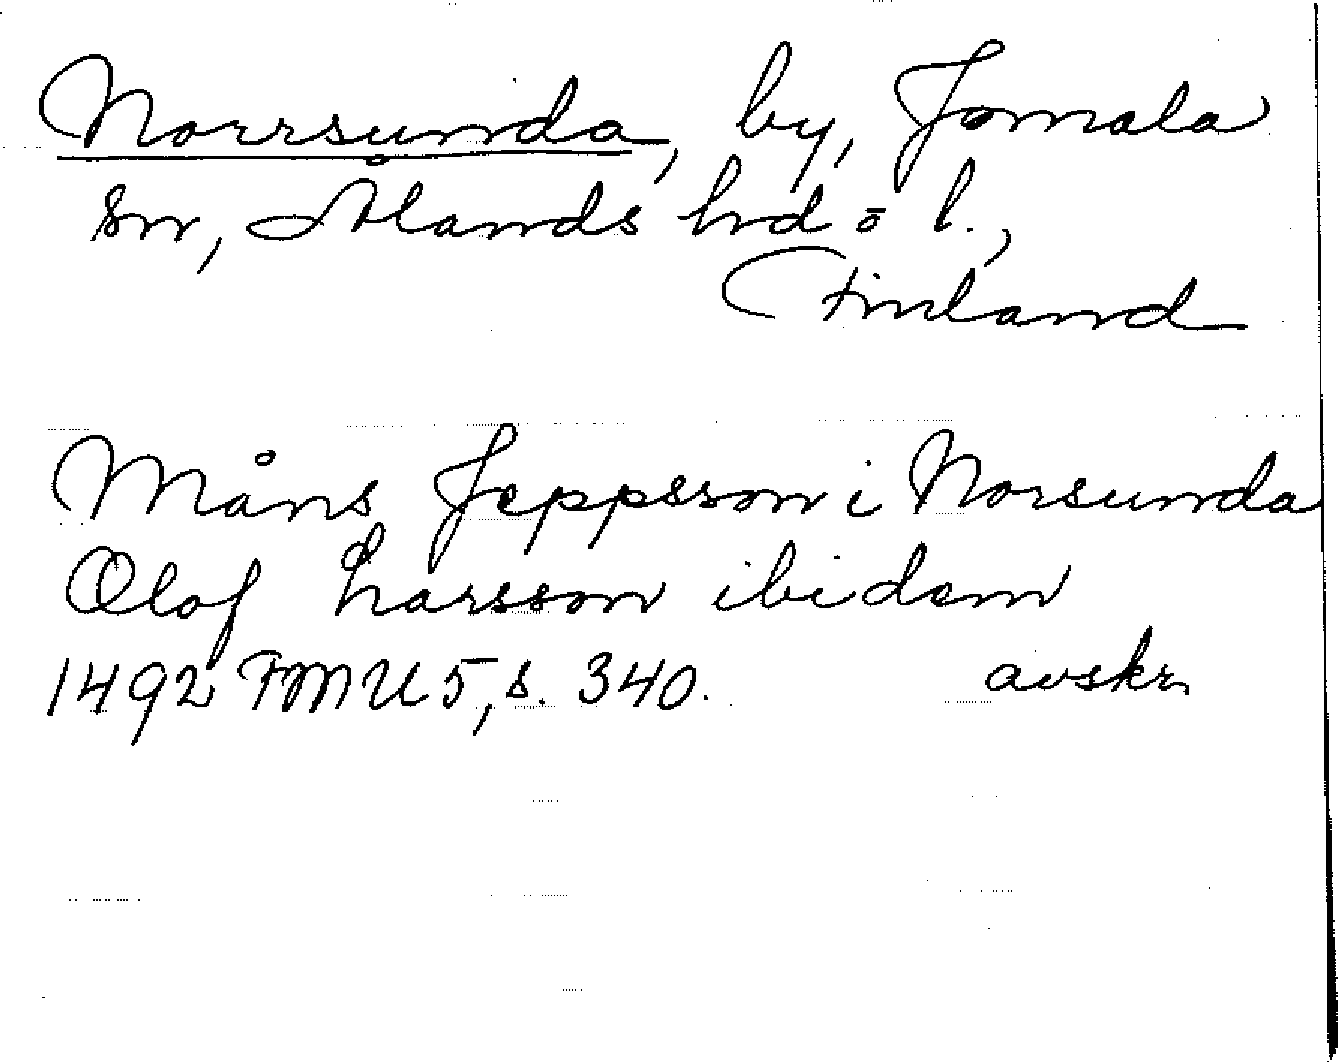 Norrsunda, by, Jomala
sn, Ålands hrd o l.,
Finland
Måns Jeppsson i Norsunda
Olof Larsson ibidem
1492 FMU 5, s. 340. avskr.